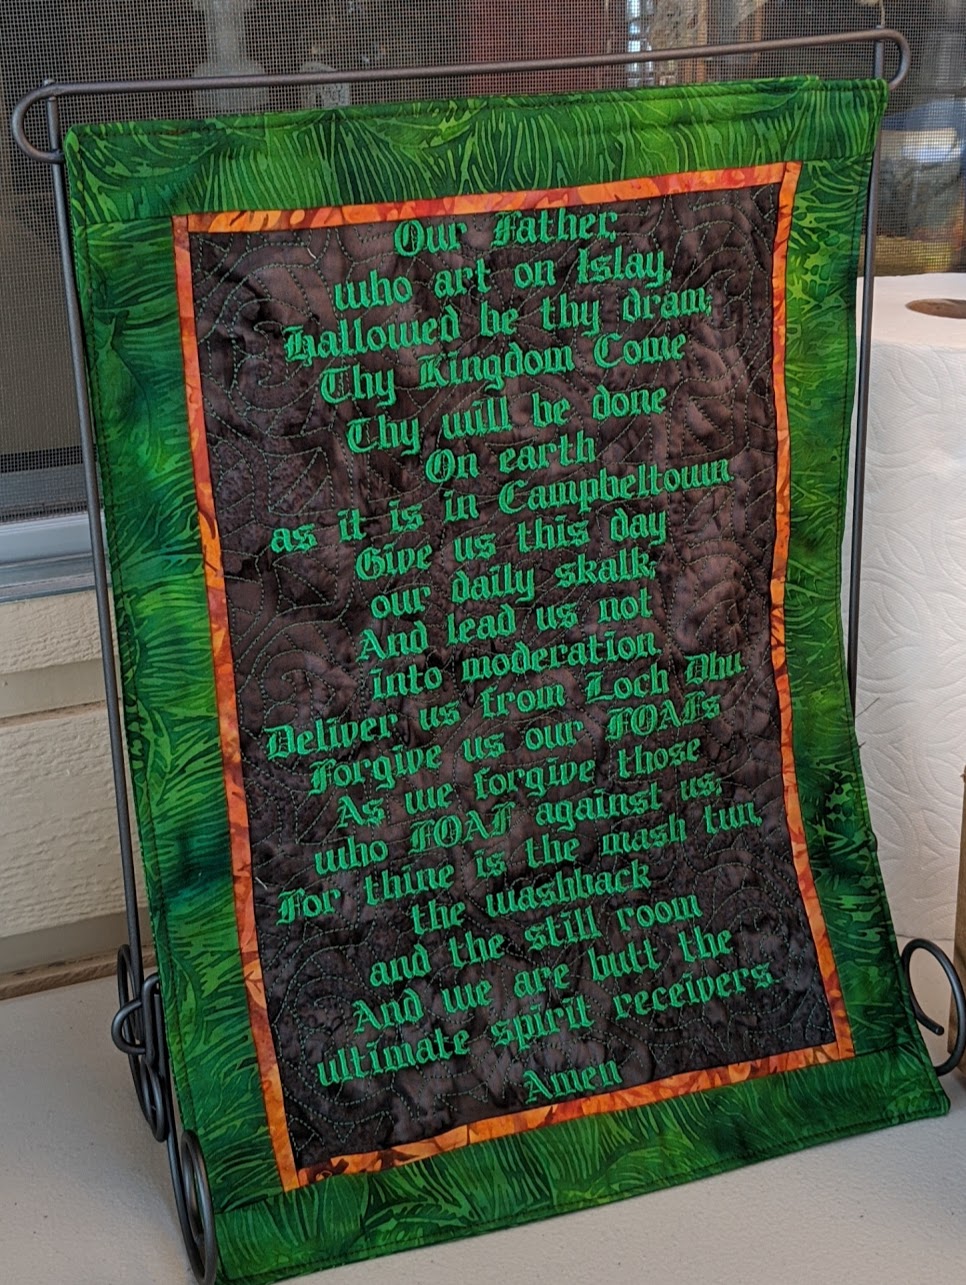 Our Father,
who art on Islay,
Hallowed be thy dram;
Thy Kingdom Come
Thy will be done
On earth
as it is in Campbeltown
Give us this day
our daily skalk;
And lead us not
into moderation
Deliver us from Loch Dhu
Forgive us our FOAFs
As we forgive those
who FOAF against us;
For thine is the mash tun,
the washback
and the still room
And we are butt the
ultimate spirit receivers.
Amen